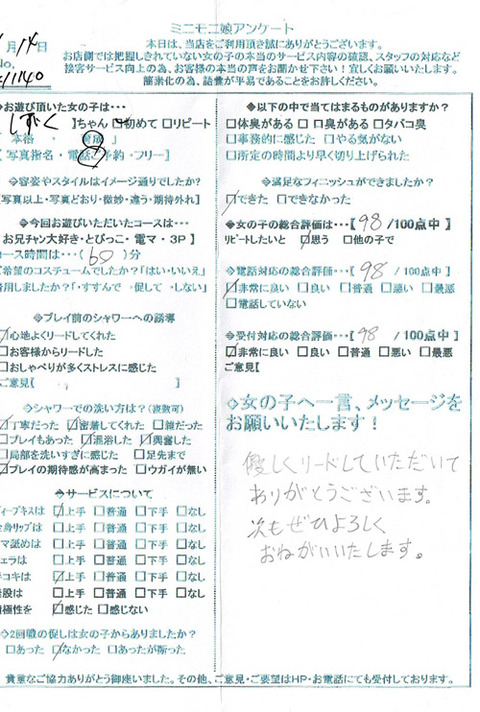 ミニモニ娘アンケート
月14日
本日は、当店をご利用頂き誠にありがとうございます。
No.
お店側では把握しきれていない女の子の本当のサービス内容の確認、スタッフの対応など
1140
接客サービス向上の為、お客様の本当の声をお聞かせ下さい！宜しくお願いいたします。
簡素化の為、語彙が平易であることをお許しください。
◆お遊び頂いた女の子は…
しずく 】ちゃん □初めて □リピート
本格・育成」
写真指名・電話ご予約・フリー】
◇容姿やスタイルはイメージ通りでしたか？
写真以上・写真どおり・微妙・違う・期待外れ】
◆今回お遊びいただいたコースは…
お兄チャン大好き・とびっこ・電マ・3P】
コース時間は…(60)分
ご希望のコスチュームでしたか？「はい・いいえ」
着用しましたか？・すすんで ⇒促して ・しない」
◆プレイ前のシャワーへの誘導
☑心地よくリードしてくれた
□お客様からリードした
□おしゃべりが多くストレスに感じた
ご意見【 】
◇シャワーでの洗い方は？(複数可)
☑丁寧だった ☑密着してくれた □雑だった
□プレイもあった ☑混浴した ☑興奮した
□局部を洗いすぎに感じた □足先まで
☑プレイの期待感が高まった □ウガイが無い
◆サービスについて
ディープキスは ☑上手 □普通 □下手 □なし
全身リップは □上手 □普通 □下手 □なし
□上手 □普通 □下手 □なし
フェラは □上手 □普通 □下手 □なし
手コキは ☑上手 □普通 □下手 □なし
素股は □上手 □普通 □下手 □なし
積極性を ☑感じた □感じない
◇2回戦の促しは女の子からありましたか？
□あった ☑なかった □あったが断った
◆以下の中で当てはまるものがありますか？
□体臭がある □口臭がある □タバコ臭
□事務的に感じた □やる気がない
□所定の時間より早く切り上げられた
◇満足なフィニッシュができましたか？
☑できた □できなかった
◆女の子の総合評価は…【 98 /100点中 】
リピートしたいと ☑思う □他の子で
◇電話対応の総合評価…【98 /100点中 】
☑非常に良い □良い □普通 □悪い □最悪
□電話していない
◇受付対応の総合評価…【98 /100点中 】
☑非常に良い □良い □普通 □悪い □最悪
ご意見【 】
◇女の子へ一言、メッセージを
お願いいたします！
優しくリードしていただいて
ありがとうございます。
次もぜひよろしく
おねがいいたします。
貴重なご協力ありがとう御座いました。その他、ご意見・ご要望はHP・お電話にても受付しております。